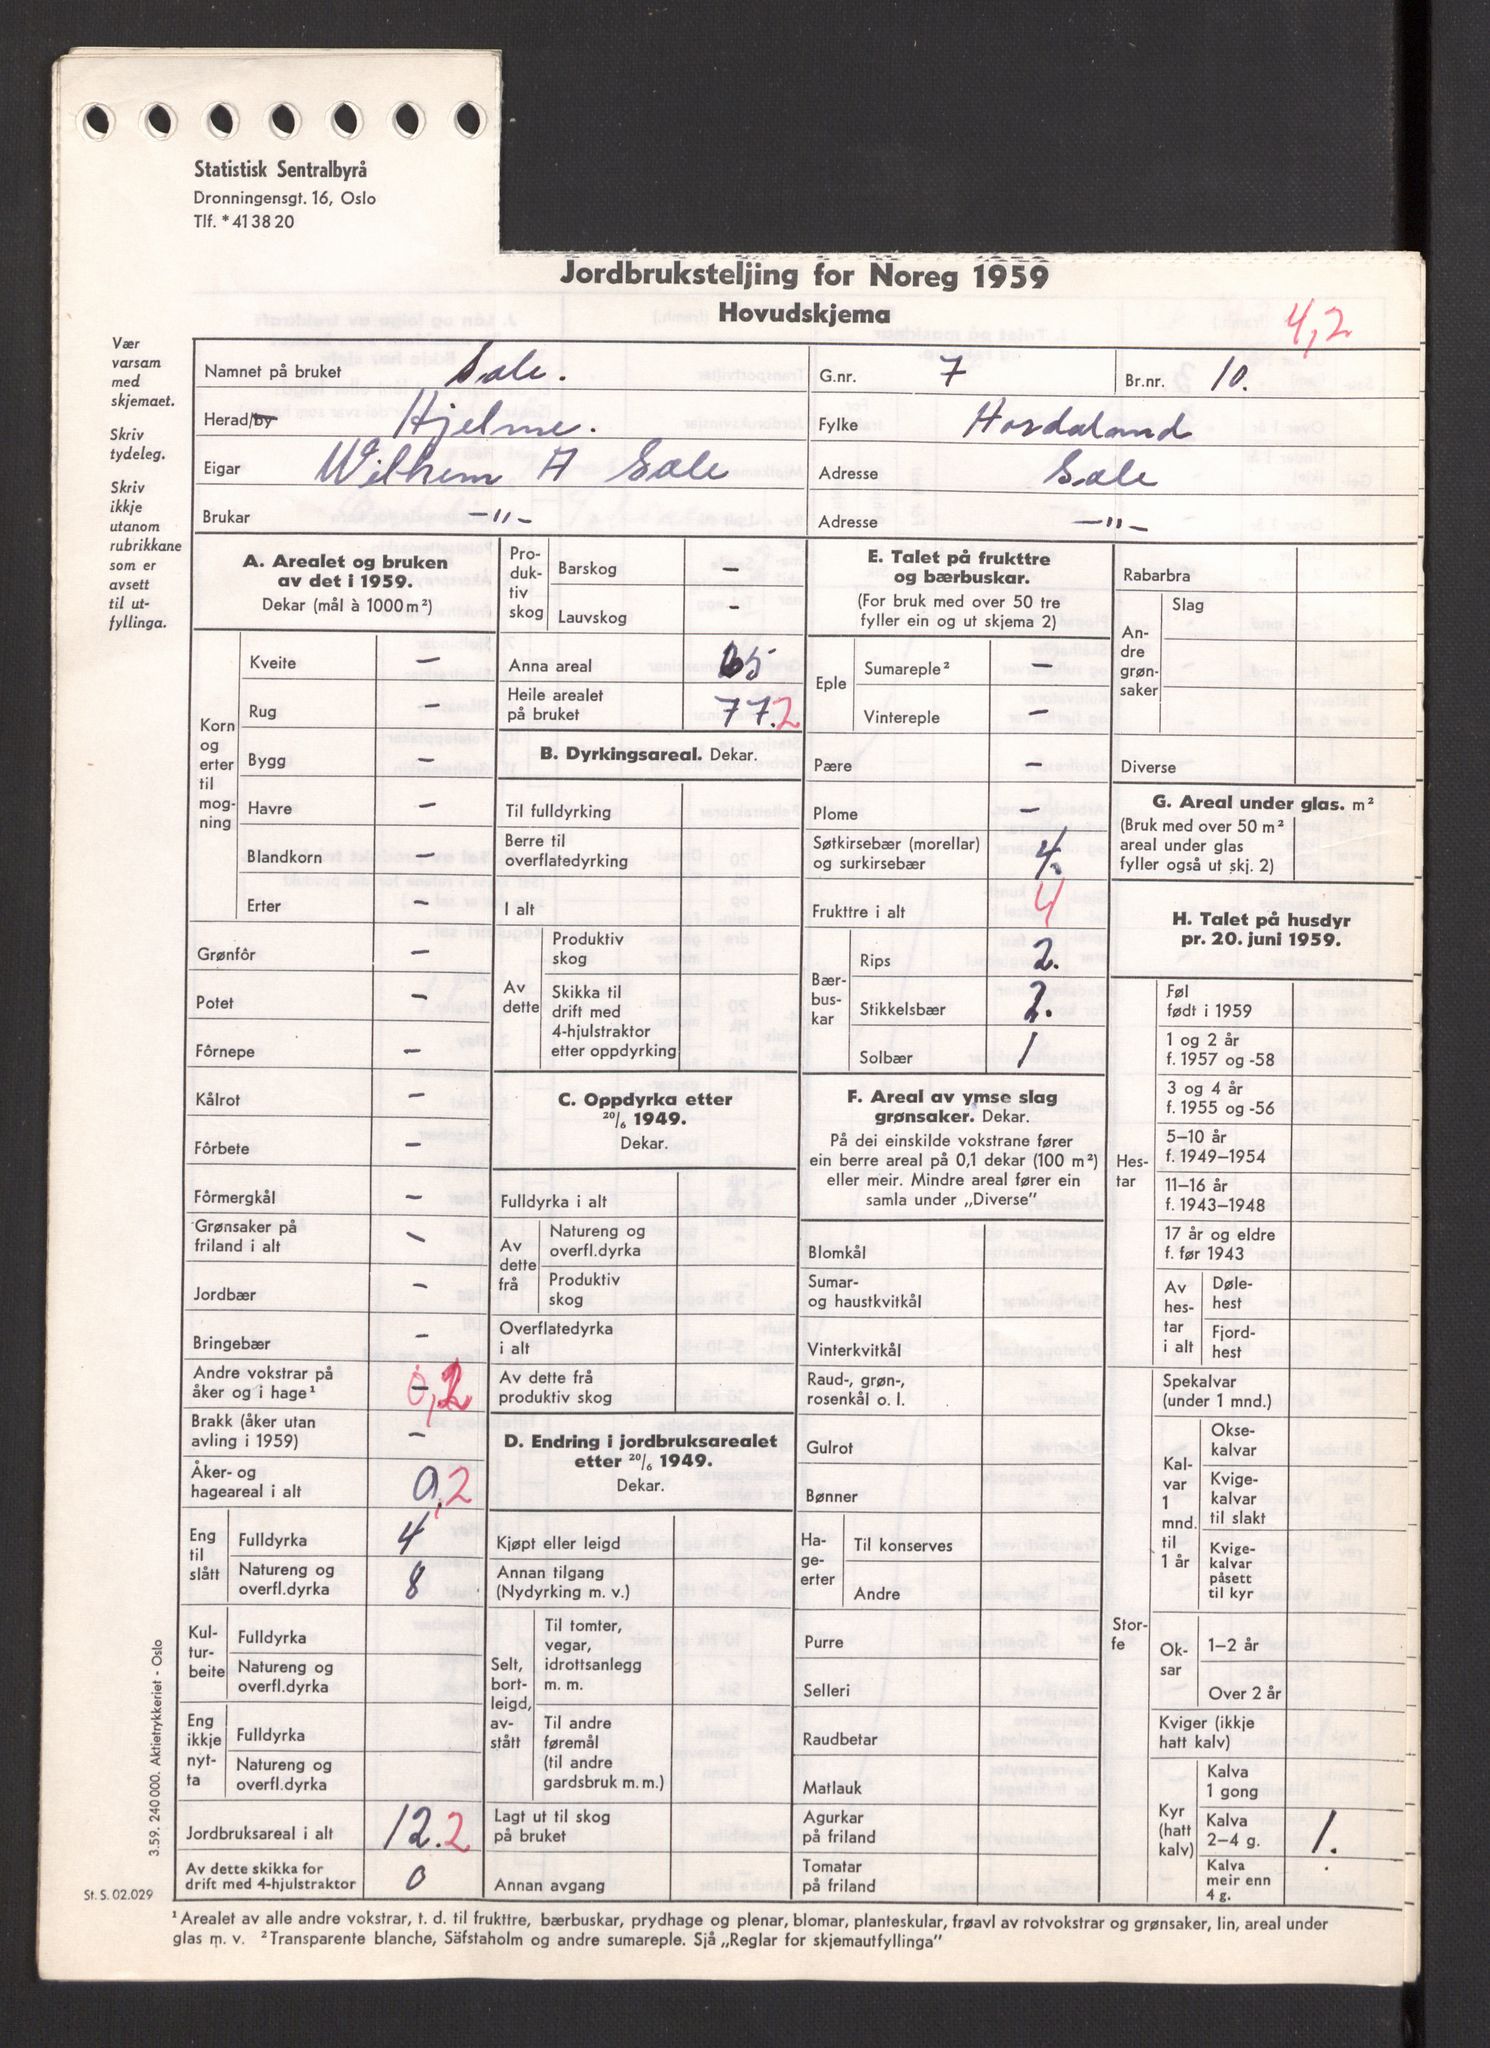 Statistisk Sentralbyrå
Dronningensgt. 16, Oslo
Tlf. *41 38 20
Jordbruksteljing for Noreg 1959
Hovudskjema
4,2
Vær
varsam
med
skjemaet.
Skriv
tydeleg.
Skriv
ikkje
utanom
rubrikkane
som er
avsett
til ut-
fyllinga.
Namnet på bruket Sale. G.nr. 7 Br.nr. 10.
Herad/by Hjelme. Fylke Hordaland
Eigar Wilhem A Sale Adresse Sale
Brukar -"- Adresse -"-
A. Arealet og bruken
av det i 1959.
Dekar (mål à 1000 m²)
Korn
og
erter
til
mog-
ning
Kveite –
Rug –
Bygg –
Havre –
Blandkorn –
Erter –
Grønfôr –
Potet –
Fôrnepe –
Kålrot –
Fôrbete –
Fôrmergkål –
Grønsaker på
friland i alt –
Jordbær –
Bringebær –
Andre vokstrar på
åker og i hage¹ – 0,2
Brakk (åker utan
avling i 1959) –
Åker- og
hageareal i alt 0,2
Eng
til
slått
Fulldyrka 4
Natureng og
overfl.dyrka 8
Kul-
tur-
beite
Fulldyrka
Natureng og
overfl.dyrka
Eng
ikkje
nyt-
ta
Fulldyrka
Natureng og
overfl.dyrka
Jordbruksareal i alt 12.2
Av dette skikka for
drift med 4-hjulstraktor 0
Pro-
duk-
tiv
skog
Barskog –
Lauvskog –
Anna areal 65
Heile arealet
på bruket 77.2
B. Dyrkingsareal. Dekar.
Til fulldyrking
Berre til
overflatedyrking
I alt
Av
dette
Produktiv
skog
Skikka til
drift med
4-hjulstraktor
etter oppdyrking
C. Oppdyrka etter
20/6 1949.
Dekar.
Fulldyrka i alt
Av
dette
frå
Natureng og
overfl.dyrka
Produktiv
skog
Overflatedyrka
i alt
Av dette frå
produktiv skog
D. Endring i jordbruksarealet
etter 20/6 1949.
Dekar.
Kjøpt eller leigd
Annan tilgang
(Nydyrking m. v.)
Selt,
bort-
leigd,
av-
stått
Til tomter,
vegar,
idrottsanlegg
m. m.
Til andre
føremål
(til andre
gardsbruk m. m.)
Lagt ut til skog
på bruket
Annan avgang
E. Talet på frukttre
og bærbuskar.
(For bruk med over 50 tre
fyller ein og ut skjema 2)
Eple
Sumareple² –
Vintereple –
Pære –
Plome –
Søtkirsebær (morellar)
og surkirsebær 4.
Frukttre i alt 4
Bær-
bus-
kar
Rips 2.
Stikkelsbær 2.
Solbær 1
F. Areal av ymse slag
grønsaker. Dekar.
På dei einskilde vokstrane fører
ein berre areal på 0,1 dekar (100 m²)
eller meir. Mindre areal fører ein
samla under „Diverse”
Blomkål
Sumar-
og haustkvitkål
Vinterkvitkål
Raud-, grøn-,
rosenkål o. l.
Gulrot
Bønner
Ha-
ge-
erter
Til konserves
Andre
Purre
Selleri
Raudbetar
Matlauk
Agurkar
på friland
Tomatar
på friland
Rabarbra
An-
dre
grøn-
saker
Slag
Diverse
G. Areal under glas. m²
(Bruk med over 50 m²
areal under glas
fyller også ut skj. 2)
H. Talet på husdyr
pr. 20. juni 1959.
Hes-
tar
Føl
født i 1959
1 og 2 år
f. 1957 og -58
3 og 4 år
f. 1955 og -56
5–10 år
f. 1949–1954
11–16 år
f. 1943–1948
17 år og eldre
f. før 1943
Av
hes-
tar
i alt
Døle-
hest
Fjord-
hest
Stor-
fe
Spekalvar
(under 1 mnd.)
Kal-
var
1
mnd.
til
1 år
Okse-
kalvar
Kvige-
kalvar
til slakt
Kvige-
kalvar
påsett
til kyr
Ok-
sar
1–2 år
Over 2 år
Kviger (ikkje
hatt kalv)
Kyr
(hatt
kalv)
Kalva
1 gong
Kalva
2–4 g. 1.
Kalva
meir enn
4 g.
3.59. 240 000. Aktietrykkeriet - Oslo
St. S. 02.029
¹ Arealet av alle andre vokstrar, t. d. til frukttre, bærbuskar, prydhage og plenar, blomar, planteskular, frøavl av rotvokstrar og grønsaker, lin, areal under
glas m. v. ² Transparente blanche, Säfstaholm og andre sumareple. Sjå „Reglar for skjemautfyllinga”